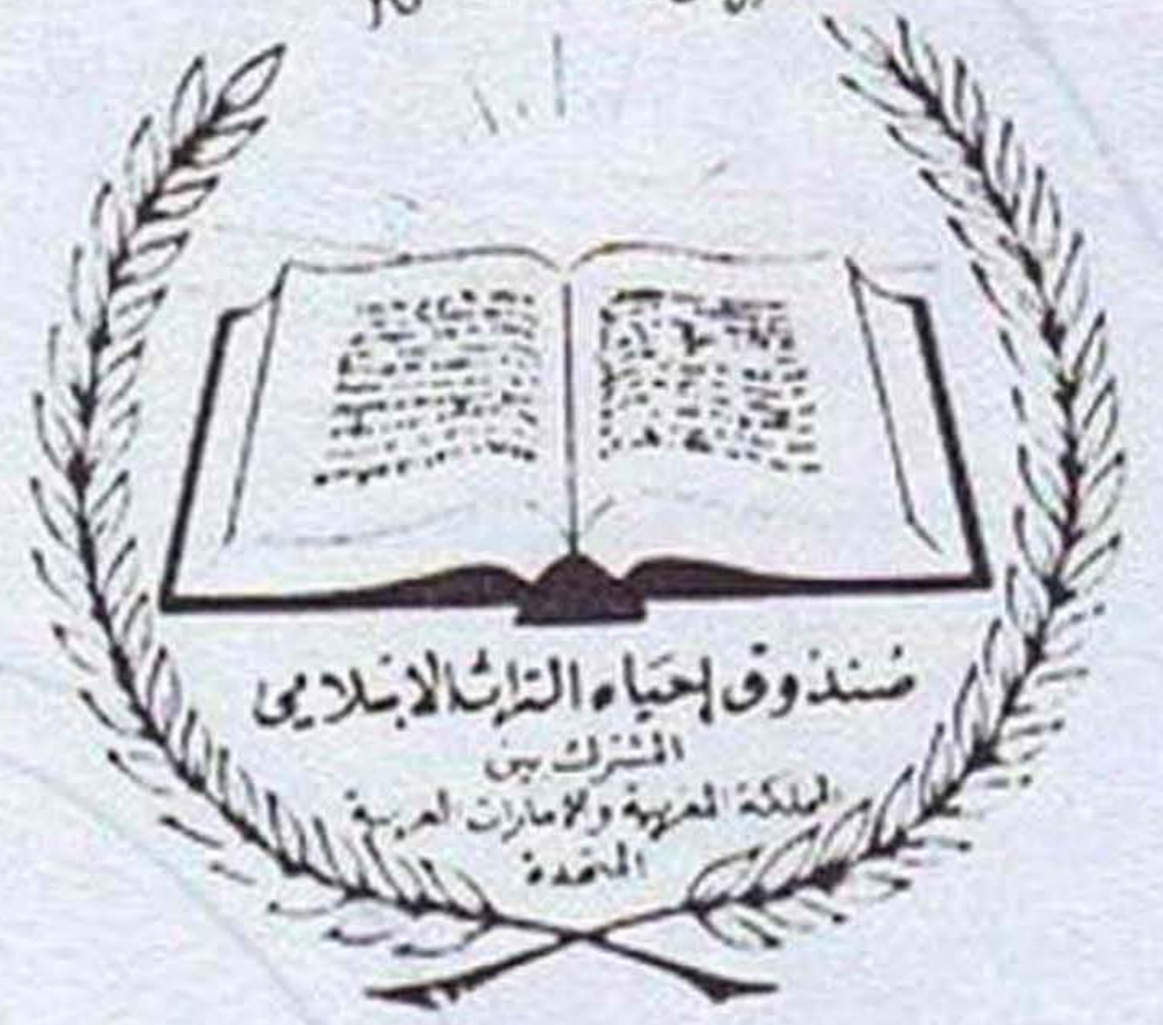 صندوق إحياء التراث الإسلامي
المشترك بين
المملكة المغربية والإمارات العربية
المتحدة